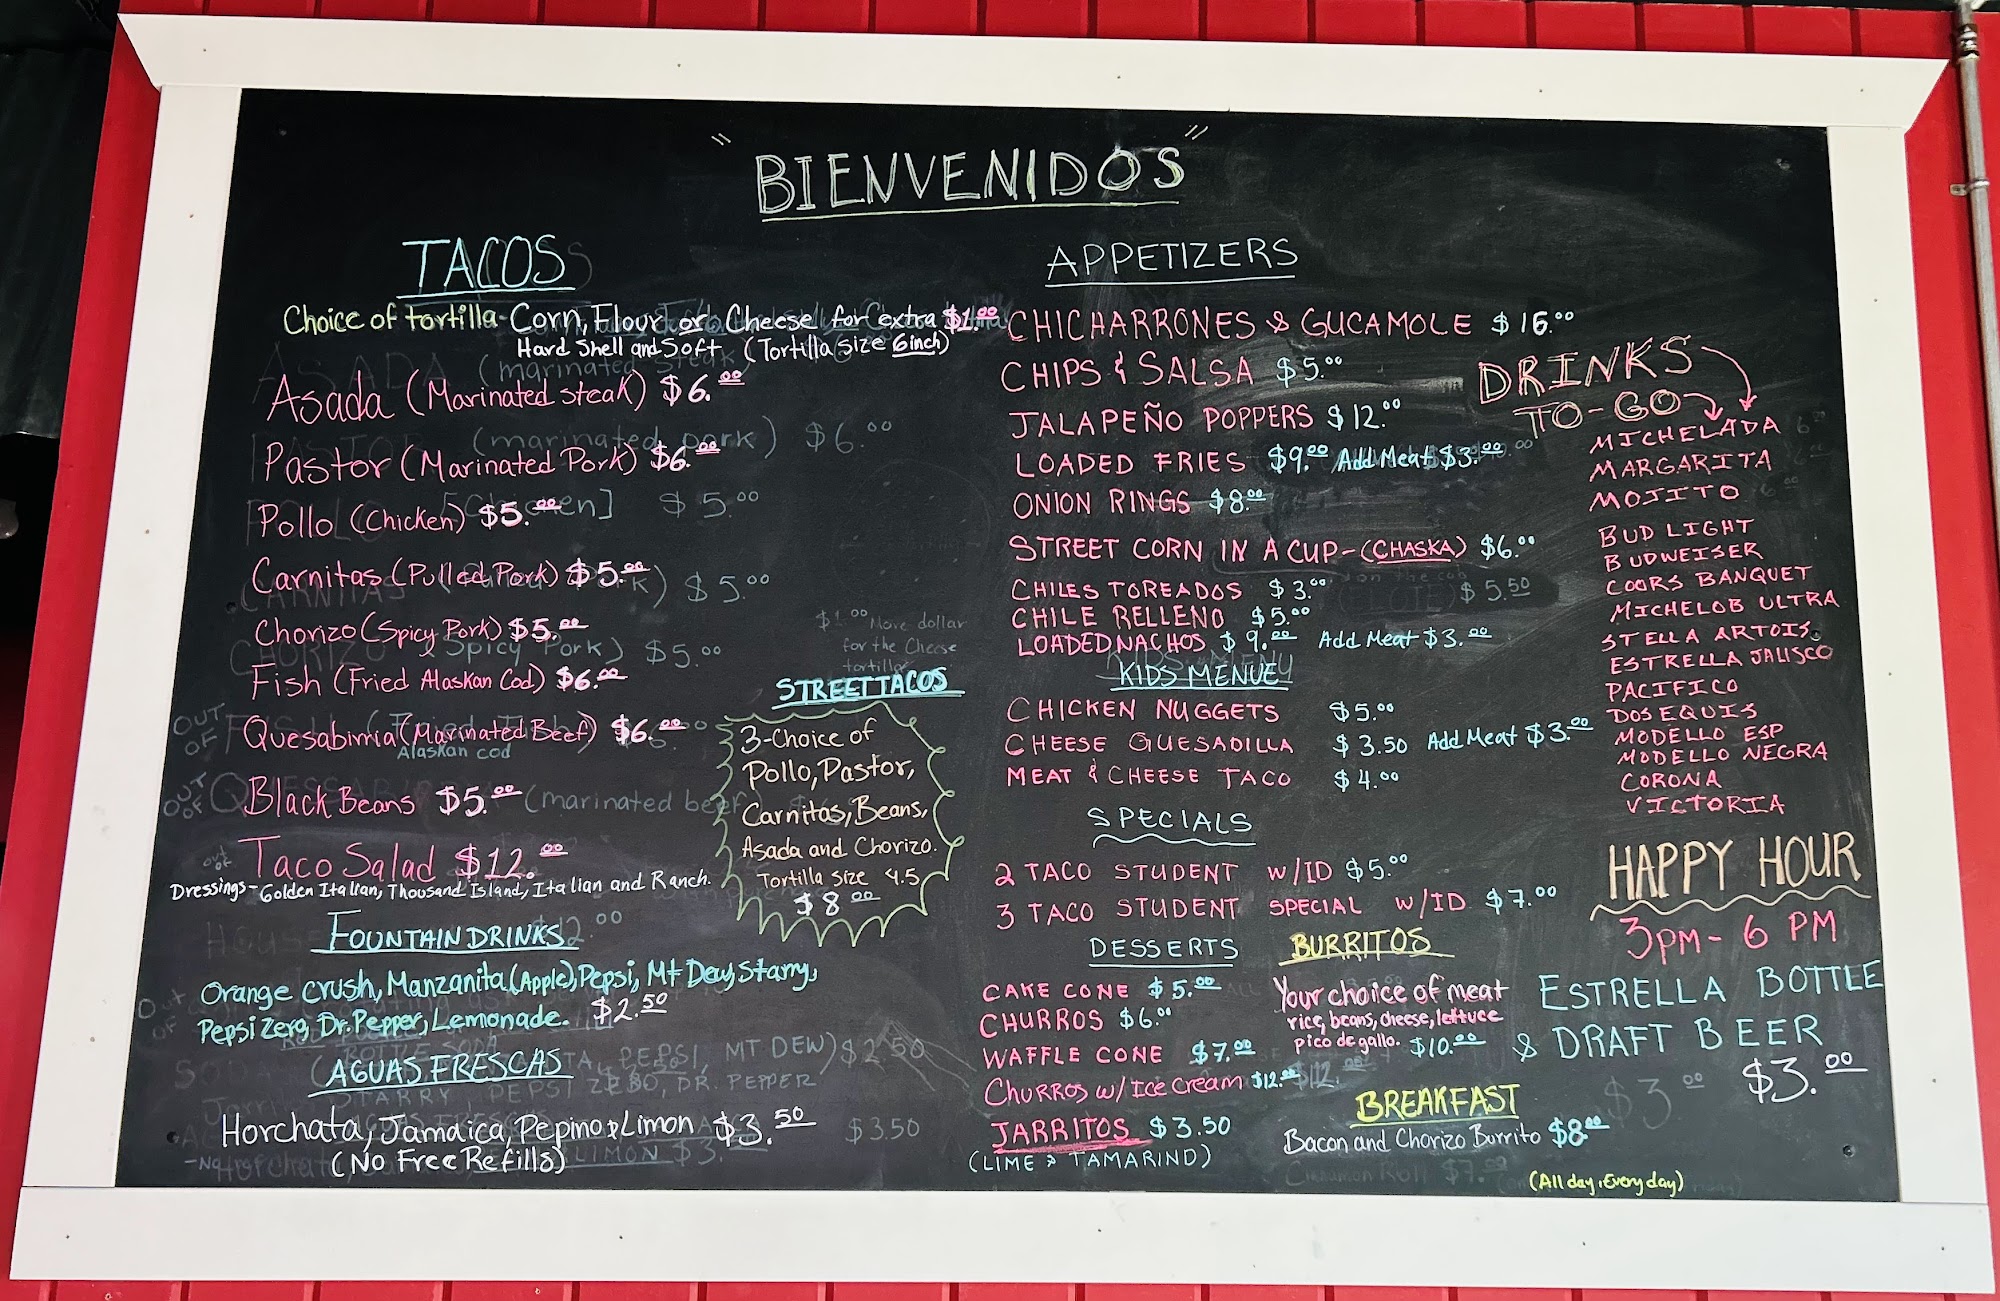 "BIENVENIDOS"
TACOS
Choice of tortilla - Corn, Flour or Cheese for extra $1.00
Hard Shell and Soft (Tortilla Size 6inch)
Asada (Marinated steak) $6.00
Pastor (Marinated Pork) $6.00
Pollo (Chicken) $5.00
Carnitas (Pulled Pork) $5.00
Chorizo (Spicy Pork) $5.00
Fish (Fried Alaskan Cod) $6.00
Quesabirria (Marinated Beef) $6.00
Black Beans $5.00
Taco Salad $12.00
Dressings - Golden Italian, Thousand Island, Italian and Ranch.
$1.00 More dollar
for the Cheese
tortilla
STREET TACOS
3-Choice of
Pollo, Pastor,
Carnitas, Beans,
Asada and Chorizo.
Tortilla Size 4.5
$8.00
FOUNTAIN DRINKS
Orange crush, Manzanita (Apple), Pepsi, Mt Dew, Starry,
Pepsi Zero, Dr. Pepper, Lemonade. $2.50
AGUAS FRESCAS
Horchata, Jamaica, Pepino & Limon $3.50
(No Free Refills)
APPETIZERS
CHICHARRONES & GUCAMOLE $16.00
CHIPS & SALSA $5.00
JALAPEÑO POPPERS $12.00
LOADED FRIES $9.00 Add Meat $3.00
ONION RINGS $8.00
STREET CORN IN A CUP-(CHASKA) $6.00
CHILES TOREADOS $3.00
CHILE RELLENO $5.00
LOADED NACHOS $9.00 Add Meat $3.00
KIDS MENUE
CHICKEN NUGGETS $5.00
CHEESE QUESADILLA $3.50 Add Meat $3.00
MEAT & CHEESE TACO $4.00
SPECIALS
2 TACO STUDENT W/ID $5.00
3 TACO STUDENT SPECIAL W/ID $7.00
DESSERTS
CAKE CONE $5.00
CHURROS $6.00
WAFFLE CONE $7.00
Churros w/ Ice Cream $12.00
JARRITOS $3.50
(LIME & TAMARIND)
BURRITOS
Your choice of meat
rice, beans, cheese, lettuce
pico de gallo. $10.00
BREAKFAST
Bacon and Chorizo Burrito $8.00
(All day, Every day)
DRINKS
TO-GO
MICHELADA
MARGARITA
MOJITO
BUD LIGHT
BUDWEISER
COORS BANQUET
MICHELOB ULTRA
STELLA ARTOIS
ESTRELLA JALISCO
PACIFICO
DOS EQUIS
MODELLO ESP
MODELLO NEGRA
CORONA
VICTORIA
HAPPY HOUR
3PM - 6 PM
ESTRELLA BOTTLE
& DRAFT BEER
$3.00